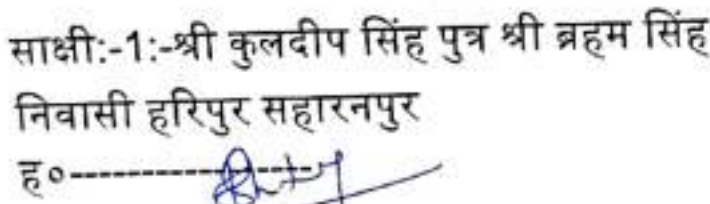 साक्षी:-1:-श्री कुलदीप सिंह पुत्र श्री ब्रहम सिंह
निवासी हरिपुर सहारनपुर
ह०------------------